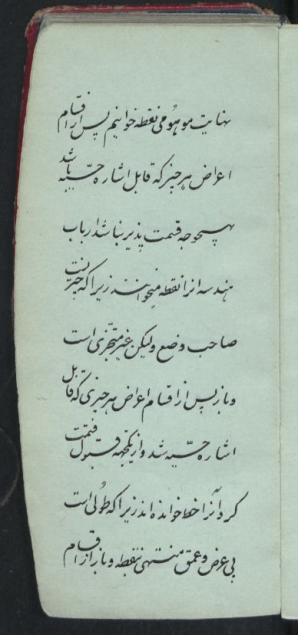 نهایت موهومی نقطه خوانیم پس از اقسام
اعراض هر چیز که قابل اشاره حسیه باشد
بهیچوجه قسمت پذیر نباشد ارباب
هندسه انرا نقطه میخوانند زیرا که چیزیست
صاحب وضع ولیکن غیر متجزی است
و باز پس از اقسام اعراض هر چیزی که قابل
اشاره حسیه شد و از یکجهة قبول قسمت
کرد آنرا خط خوانده اند زیرا که طولی است
بی عرض و عمق منتهی بنقطه و باز از اقسام